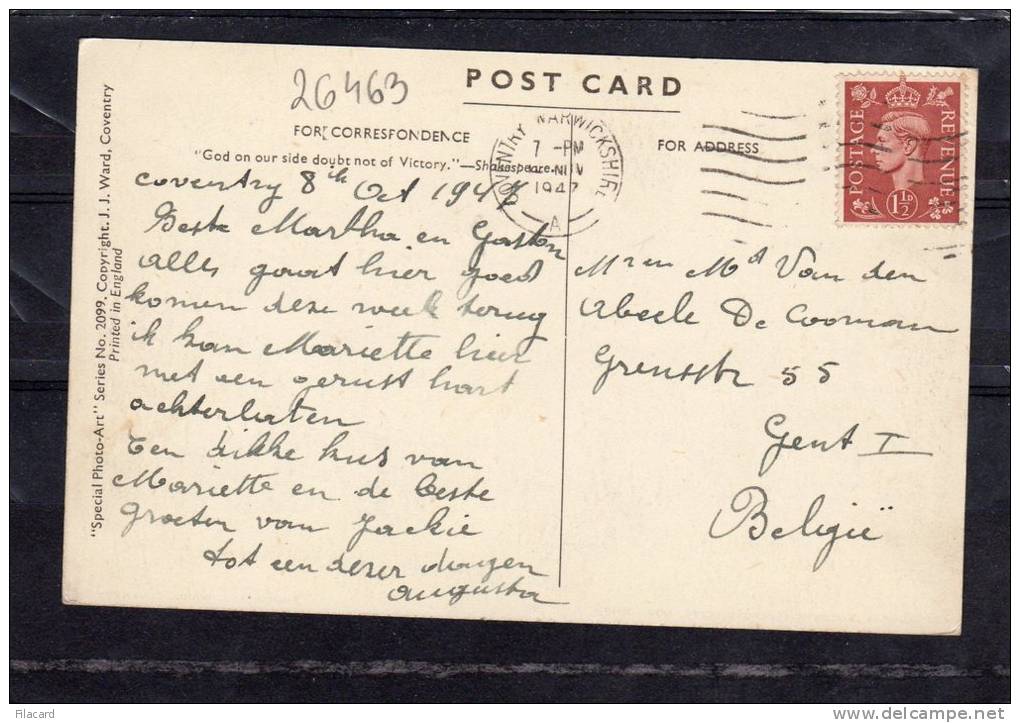 26463
POST CARD
FOR CORRESPONDENCE
FOR ADDRESS
"God on our side doubt not of Victory."—Shakespeare.
COVENTRY WARWICKSHIRE
7 -PM
NOV
1947
A
POSTAGE
REVENUE
1½D
Coventry 8th Oct 1947
Beste Martha en Gaston
alles gaat hier goed
komen deze week terug
ik kan Mariette hier
met een gerust hart
achterlaten
Een dikke kus van
Mariette en de beste
groeten van Jackie
tot een dezer dagen
Augusta
Mr en Md Van den
Abeele De Cooman
Grensstr 55
Gent I
België
"Special Photo-Art" Series No. 2099, Copyright. J. J. Ward, Coventry
Printed in England
Filacard
delcampe.net